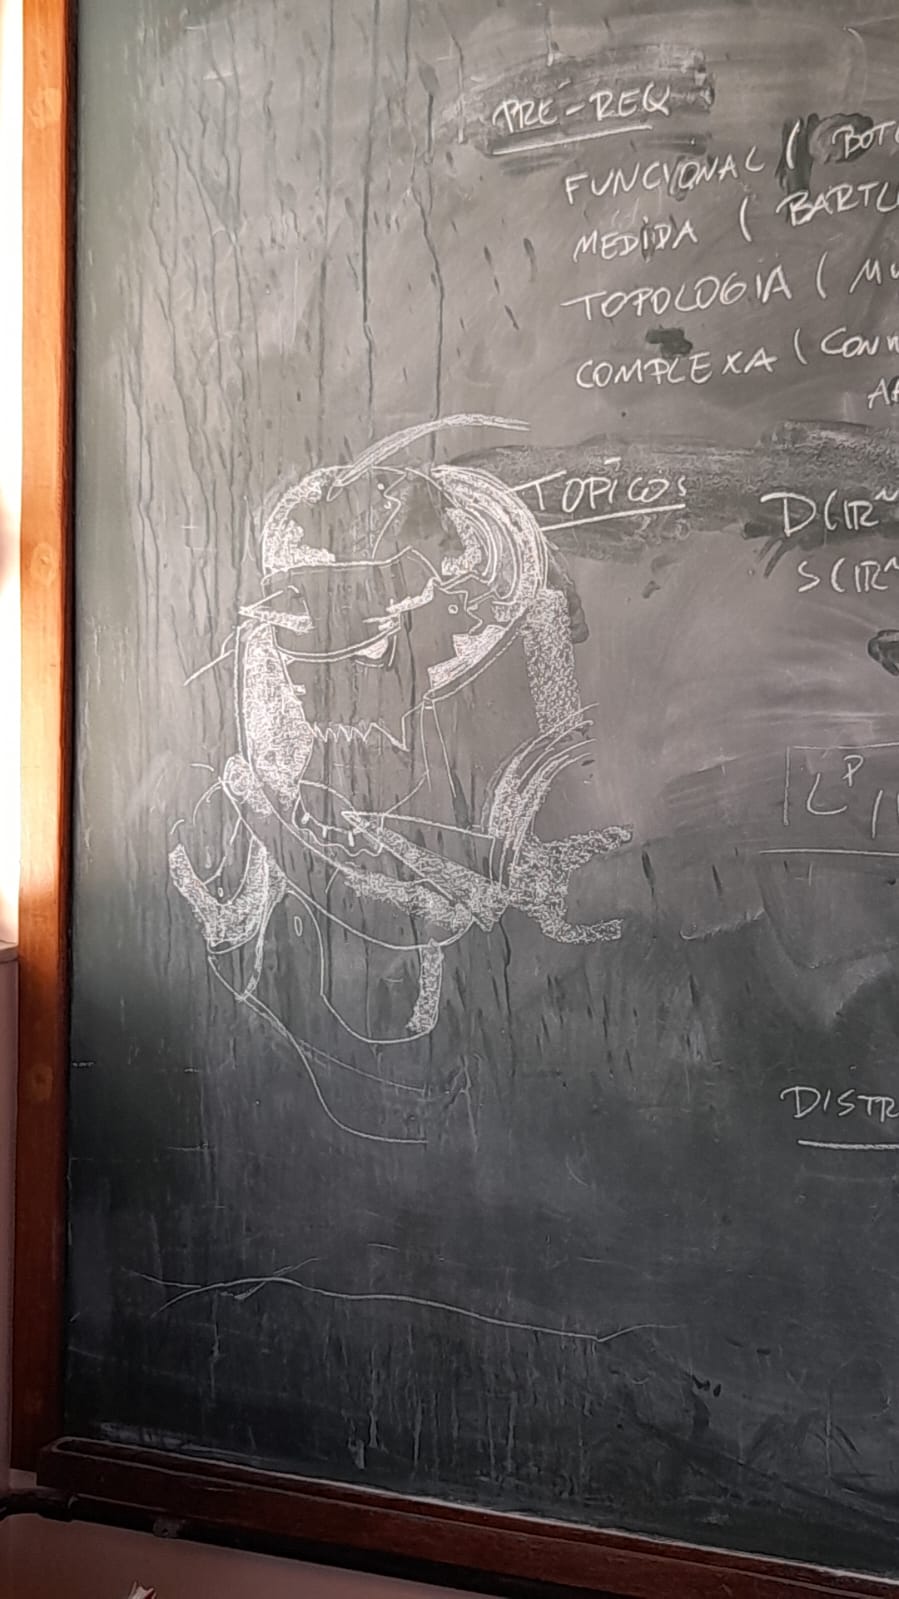 PRÉ-REQ
FUNCIONAL ( BOT
MEDIDA ( BARTL
TOPOLOGIA ( MU
COMPLEXA ( CONW
TOPICOS D(ℝⁿ
S(ℝⁿ
Lᵖ
DISTR